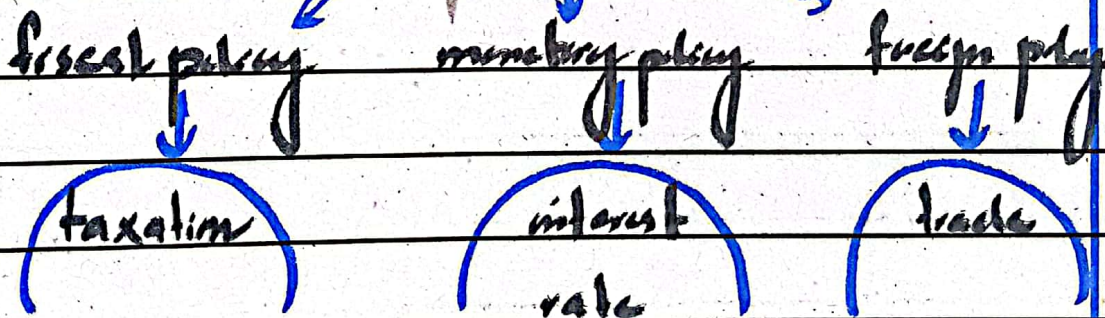 fiscal policy monetary policy foreign policy
taxation interest trade
rate